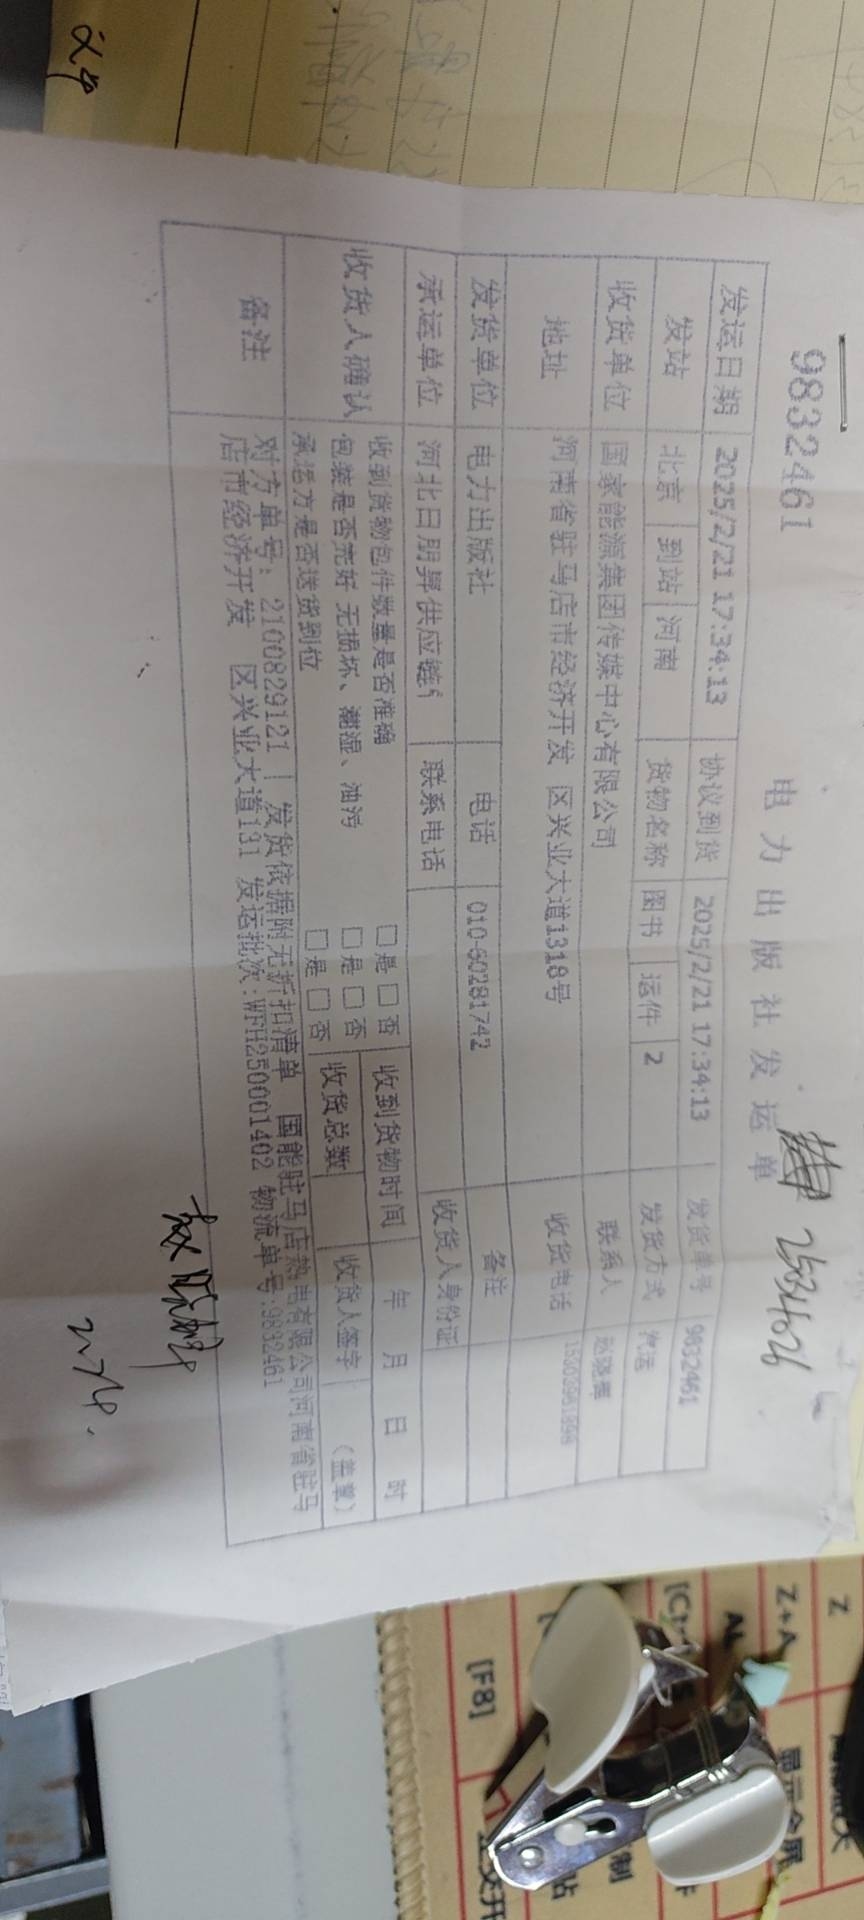 9832461
电力出版社发运单
2534026
发运日期 2025/2/21 17:34:13 协议到货 2025/2/21 17:34:13 发货单号 9832461
发站 北京 到站 河南 货物名称 图书 运件 2 发货方式 汽运
收货单位 国家能源集团传媒中心有限公司 联系人
地址 河南省驻马店市经济开发 区兴业大道1318号 收货电话
发货单位 电力出版社 电话 010-60281742 备注
承运单位 河北日朋昇供应链 联系电话 收货人身份证
收货人确认 收到货物包件数量是否准确 □是□否 收到货物时间 年 月 日 时
包装是否完好 无损坏、潮湿、油污 □是□否 收货总数 收货人签字 (盖章)
承运方是否送货到位 □是□否
备注 对方单号: 2100829121 | 发货依据附无折扣清单 国能驻马店热电有限公司河南省驻马
店市经济开发 区兴业大道131 发运批次:WFH250001402 物流单号:9832461
2.24.
Z
Z+A
[F8]